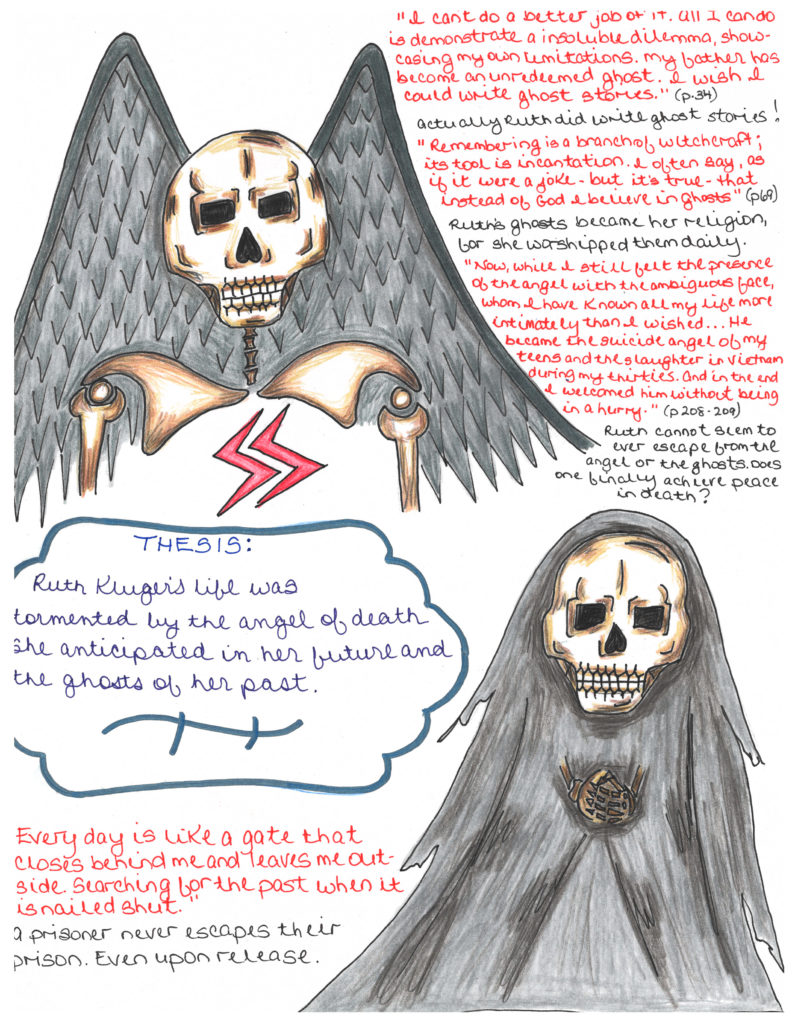 "I cant do a better job of it. All I can do
is demonstrate a insoluble dilemma, show-
casing my own limitations. My father has
become an unredeemed ghost. I wish I
could write ghost stories." (p.34)
actually Ruth did write ghost stories!
"Remembering is a branch of witchcraft;
its tool is incantation. I often say, as
if it were a joke - but it's true - that
instead of God I believe in ghosts" (p69)
Ruth's ghosts became her religion,
for she worshipped them daily.
"Now, while I still felt the presence
of the angel with the ambiguous face,
whom I have known all my life more
intimately than I wished... He
became the suicide angel of my
teens and the slaughter in Vietnam
during my thirties. And in the end
I welcomed him without being
in a hurry." (p 208-209)
Ruth cannot seem to
ever escape from the
angel or the ghosts. Does
one finally achieve peace
in death?
THESIS:
Ruth Kluger's life was
tormented by the angel of death
she anticipated in her future and
the ghosts of her past.
Every day is like a gate that
closes behind me and leaves me out-
side. Searching for the past when it
is nailed shut."
a prisoner never escapes their
prison. Even upon release.